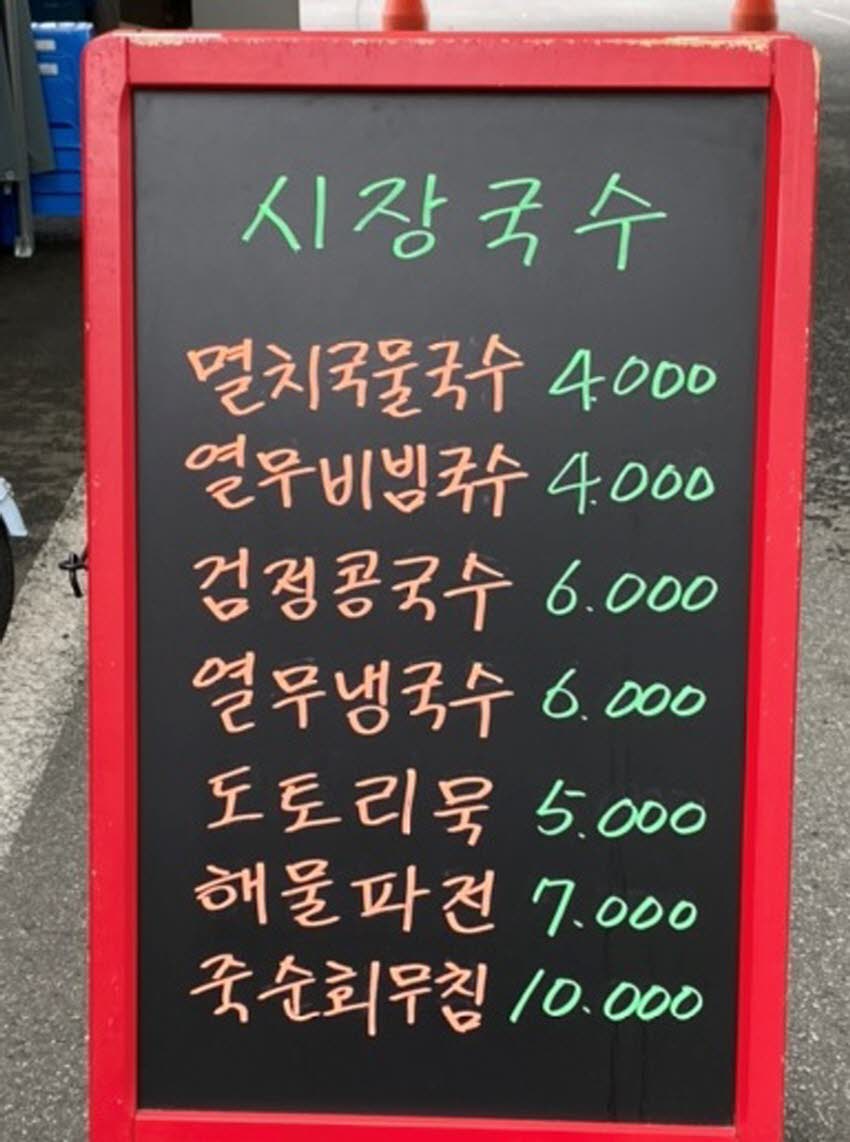 시장국수
멸치국물국수 4.000
열무비빔국수 4.000
검정콩국수 6.000
열무냉국수 6.000
도토리묵 5.000
해물파전 7.000
죽순회무침 10.000